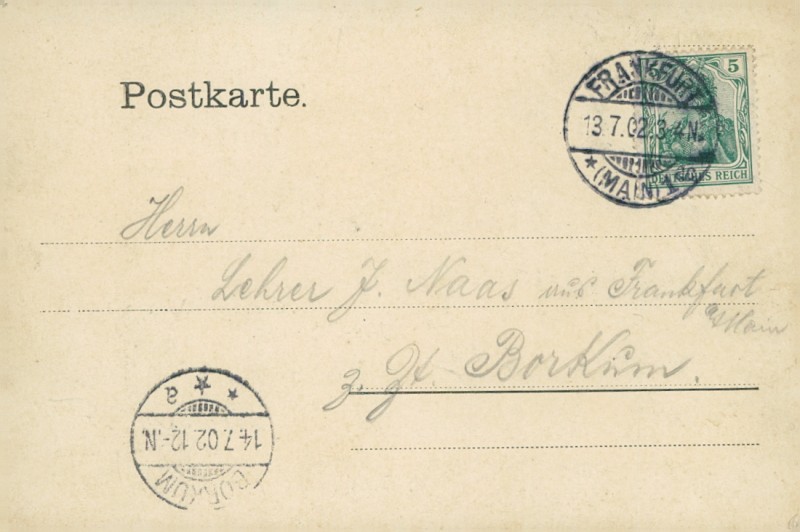 Postkarte.
FRANKFURT
5
13.7.02.3-4N.
(MAIN) 1
DEUTSCHES REICH
Herrn
Lehrer J. Naas aus Frankfurt
a/Main
z. Zt. Borkum.
a
14.7.02.12-N.
BORKUM